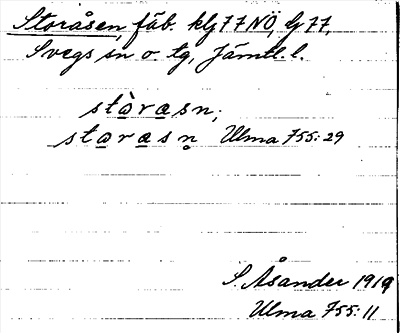 Storåsen, fäb. klJ77NÖ, lJ77,
Svegs sn o. tg, Jämtl. l.
stàrasn;
starasn̥ Ulma 755:29
S. Åsander 1919
Ulma 755:11